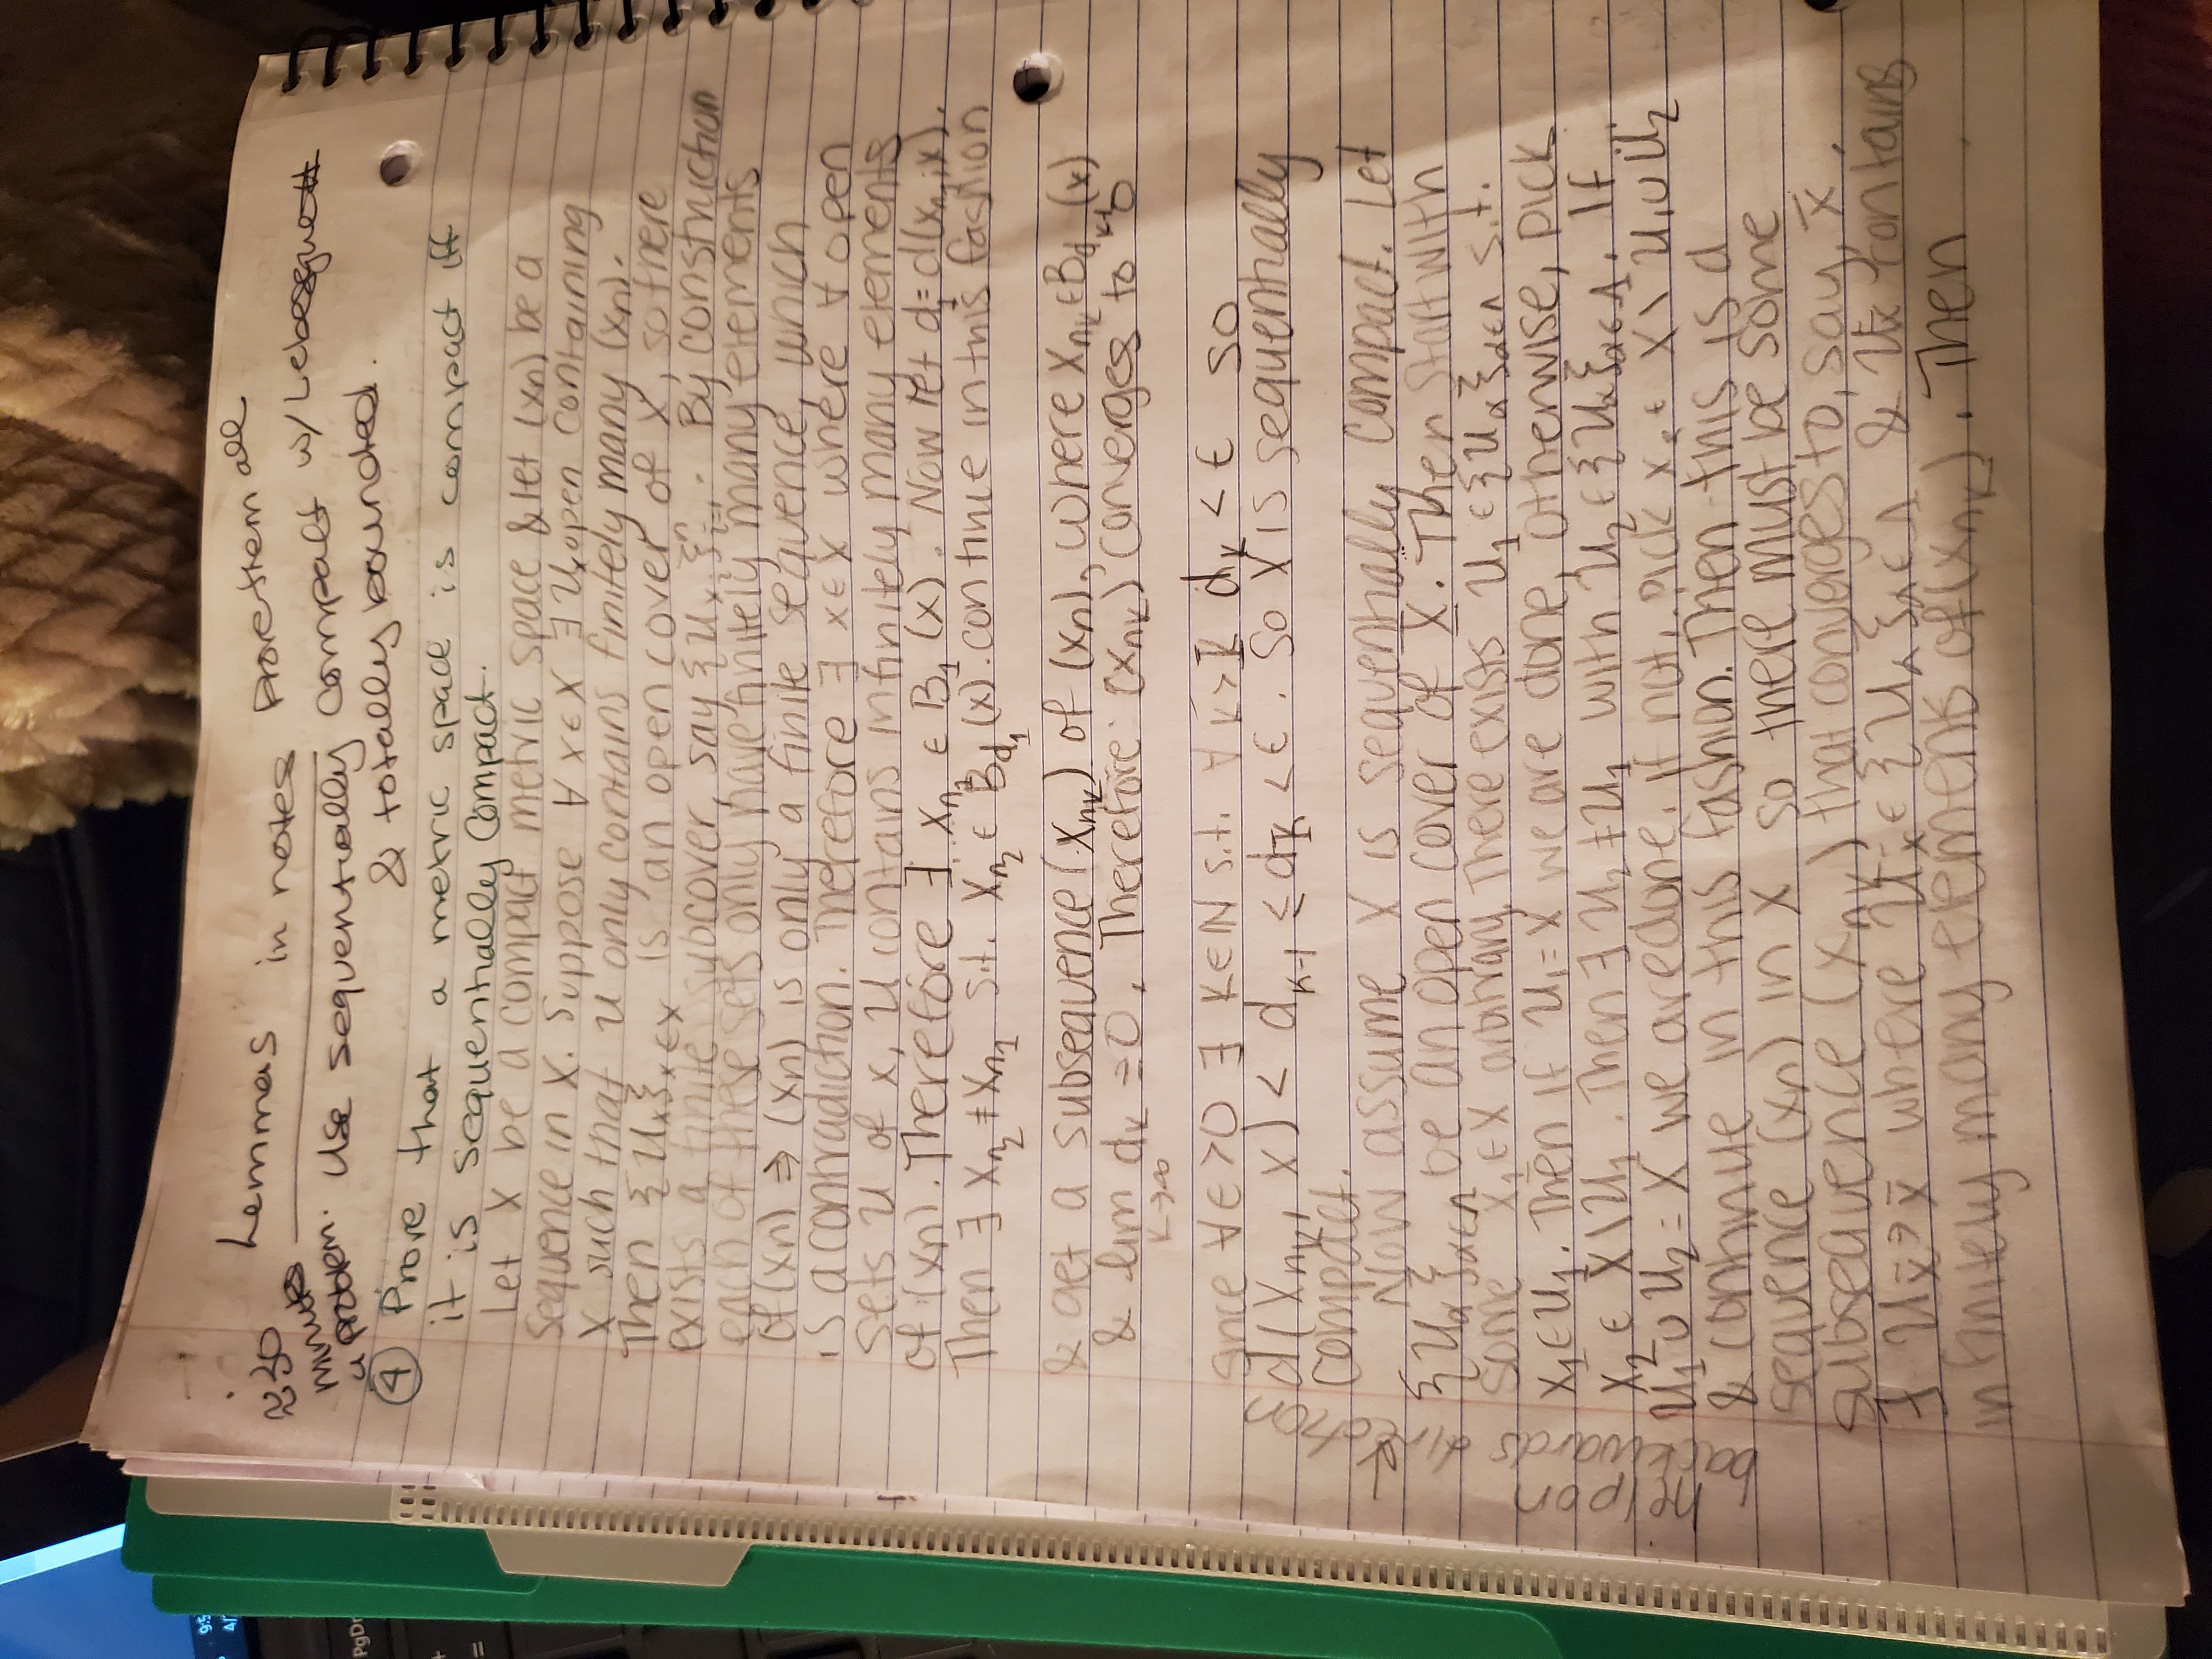 9:5
4/
PgDn
≈30
minutes
a problem.
Lemmas in notes Prove them all
Use sequentially compact w/ Lebesgue
& totally bounded.
④ Prove that a metric space is compact iff
it is sequentially compact.
Let X be a compact metric space & let (xn) be a
sequence in X. Suppose ∀ x∈X ∃ Uₓ open containing
X such that U only contains finitely many (xn).
Then {Uₓ}ₓ∈X is an open cover of X, so there
exists a finite subcover, say {U_xᵢ}ⁿᵢ₌₁. By construction
each of these sets only have finitely many elements
of (xn) ⇒ (xn) is only a finite sequence, which
is a contradiction. Therefore ∃ x∈X where ∀ open
sets U of x, U contains infinitely many elements
of (xn). Therefore ∃ x_n₁ ∈ B₁(x). Now let d₁=d(x_n₁,x).
Then ∃ x_n₂ ≠ x_n₁ s.t. x_n₂ ∈ B_d₁(x). continue in this fashion
& get a subsequence (x_nk) of (xn), where x_nk ∈ B_d_k-1(x)
& lim k→∞ dk = 0. Therefore (x_nk) converges to 0
since ∀ε>0 ∃ K∈ℕ s.t. ∀ k>K̄ dk < ε so
d(x_nk, x) < d_k-1 ≤ d_K̄ < ε. So X is sequentially
compact.
help on
backwards direction
Now assume X is sequentially compact. Let
{Uα}α∈Λ be an open cover of X. Then start with
some x₁∈X arbitrary. There exists U₁ ∈ {Uα}α∈Λ s.t.
x₁∈U₁. Then if U₁=X we are done, otherwise, pick
x₂ ∈ X\U₁. Then ∃ U₂≠U₁ with U₂ ∈ {Uα}α∈Λ. If
U₁∪U₂ = X we are done, if not, pick x₃ ∈ X\U₁∪U₂
& continue in this fashion. Then this is a
sequence (xn) in X so there must be some
subsequence (x_nk) that converges to, say, x̄.
∃ U_x̄ ∋ x̄ where U_x̄ ∈ {Uα}α∈Λ & U_x̄ contains
infinitely many elements of (x_nk). Then